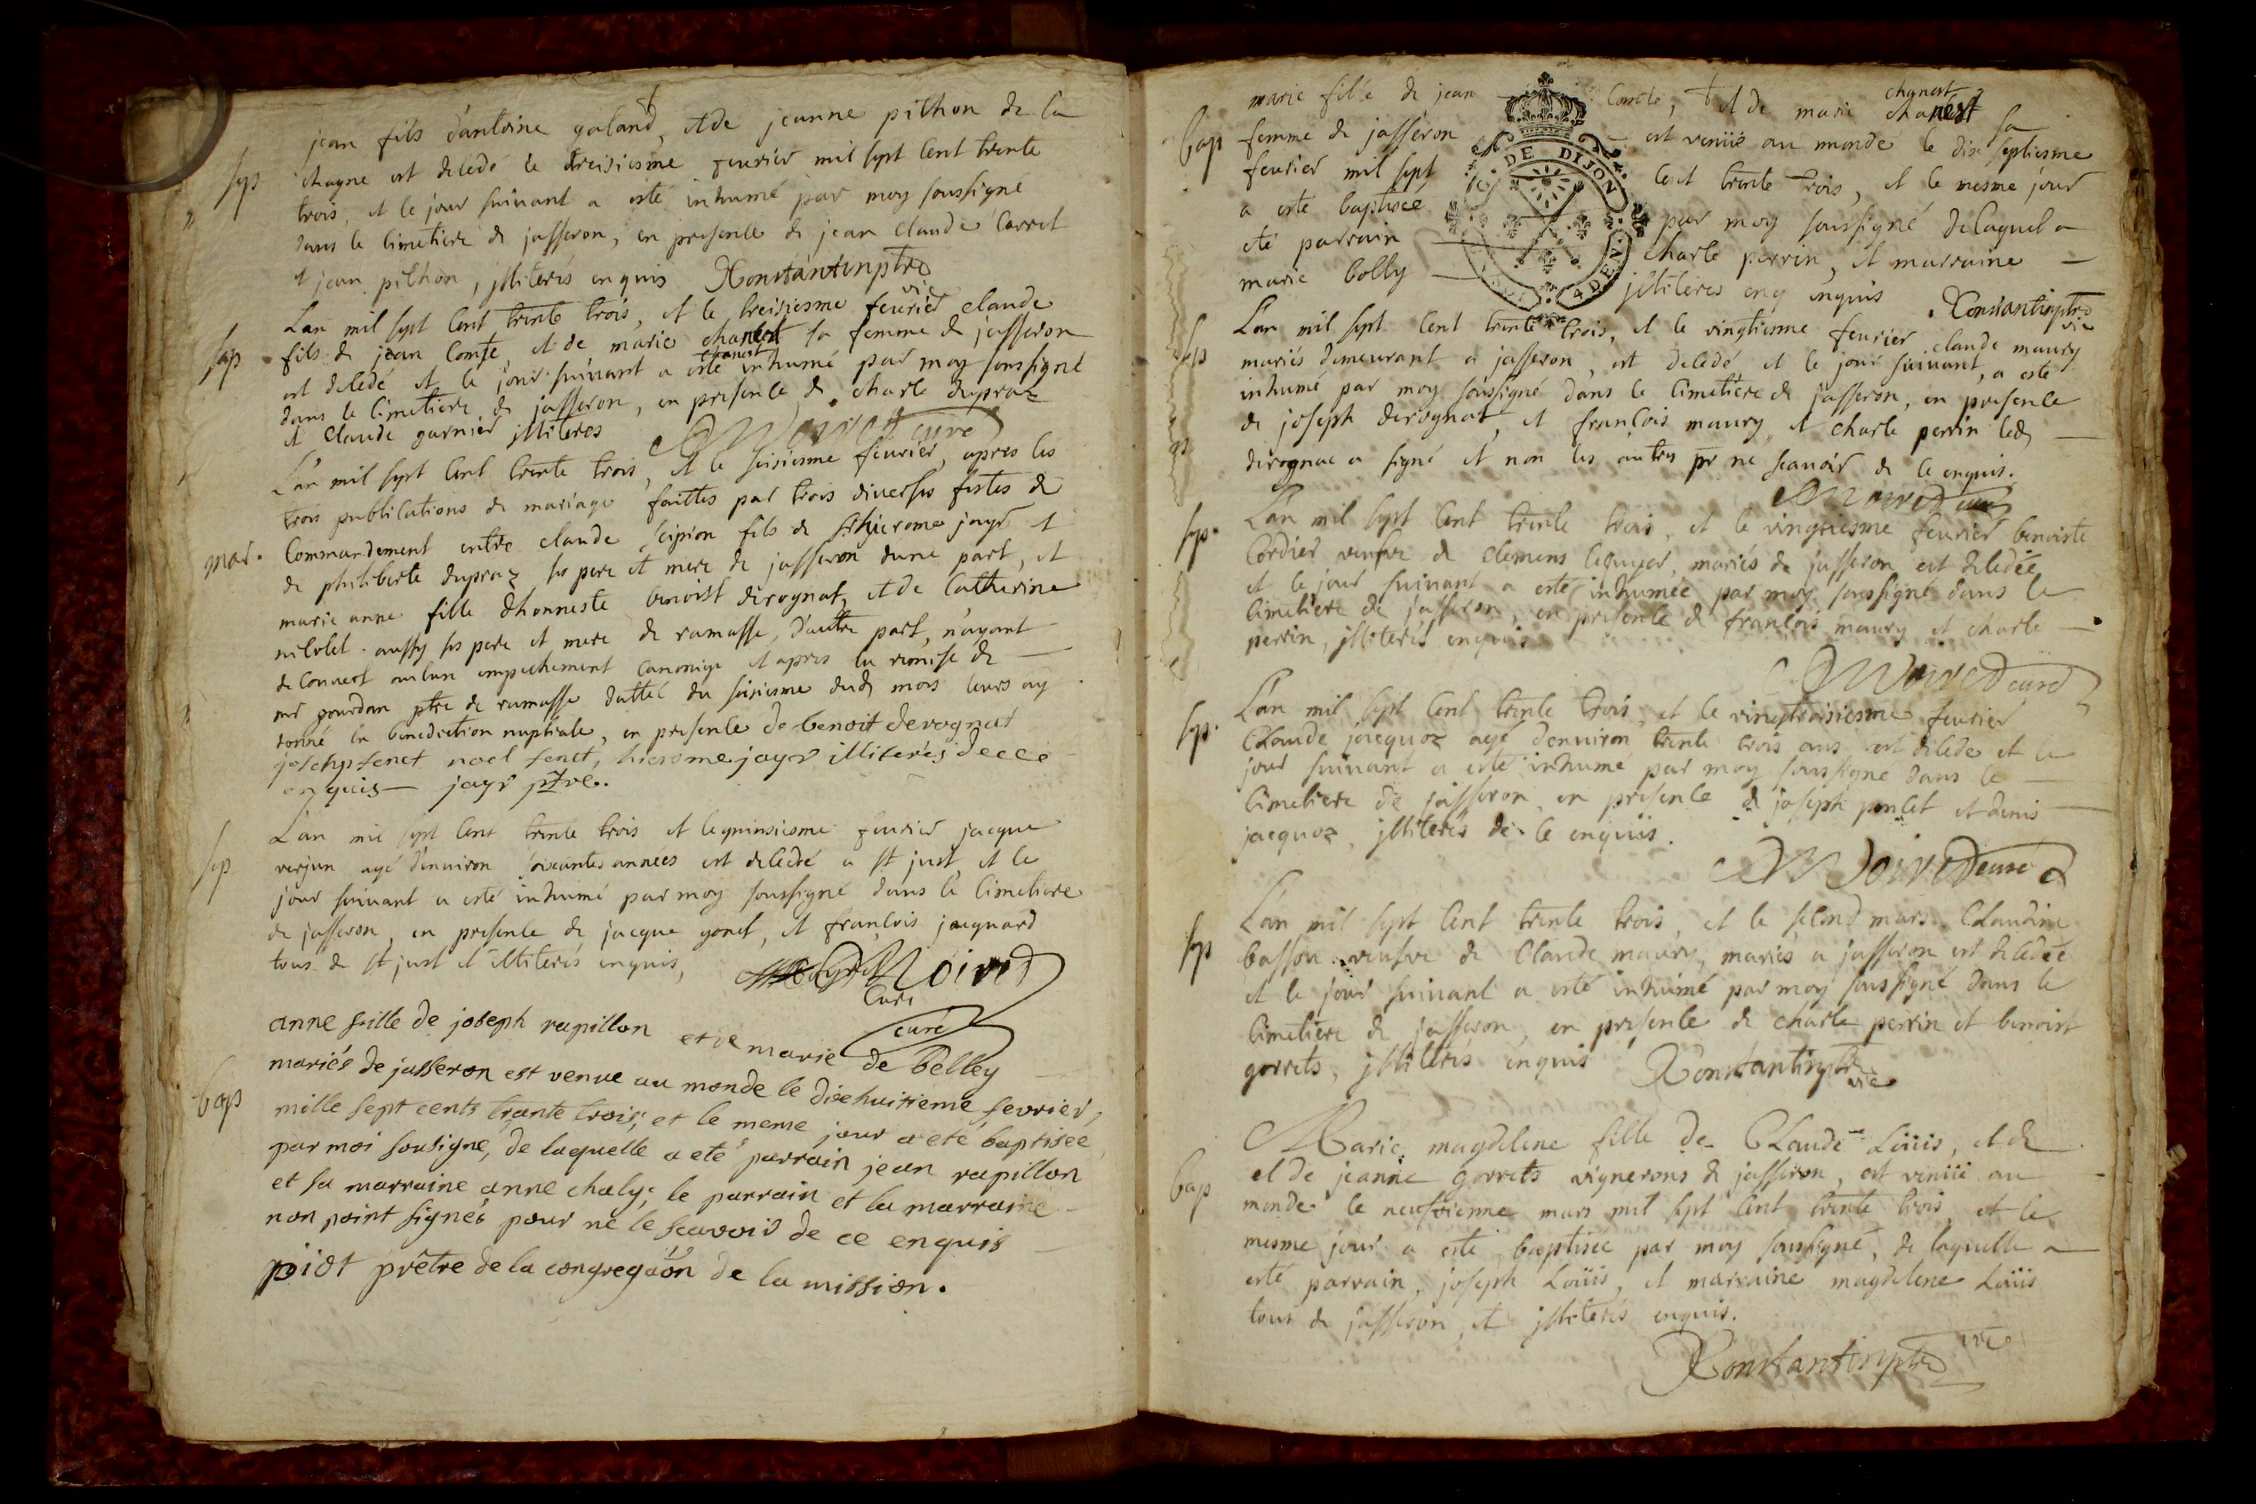 jean fils d'antoine galand, et de jeanne pithon de la
sep chagne est decedé le treisiesme feurier mil sept cent trente
trois, et le jour suiuant a esté inhumé par moy soussigné
dans le cimetiere de jasseron, en presence de jean claude Carret
et jean pithon, jlliterés enquis Constantin ptre
vic
Lan mil sept cent trente trois, et le treisiesme feurier claude
sep fils de jean Comte, et de marie chanest sa femme de jasseron
chanest
est decedé et le jour suiuant a esté inhumé par moy soussigné
dans le cimetiere de jasseron, en presence de charle dupraz
et claude garnier jlliteres curé
L'an mil sept cent trente trois, et le seisiesme feurier, apres les
trois publications de mariage faittes par trois diuerses festes de
mar. Commandement entre claude scipion fils de hierome jayr et
de philiberte dupraz ses pere et mere de jasseron dune part, et
marie anne fille d'honneste benoist derognat, et de Catherine
nicolet aussy ses pere et mere de ramasse, d'autre part, n'ayant
decouuert aucun empechement canonique et apres la remise de
mr gourdan ptre de ramasse dattée du seisiesme dud mois leurs ay
donné la benediction nuptiale, en presence de benoit derognat
joseph fenet noel fenet, hierome jayr illiterés de ce
enquis jayr ptre.
L'an mil sept cent trente trois et le quinsiesme feurier jacque
sep verjun agé d'enuiron soixantes années est decedé a st just, et le
jour suiuant a esté inhumé par moy soussigné dans le cimetiere
de jasseron, en presence de jacque gonet, et francois jaquard
tous de st just et illiterés enquis,
Curé
curé
anne fille de joseph rapillon et de marie de Belley
mariés de jasseron est venue au monde le dixehuitieme fevrier,
bap mille sept cents trante trois, et le meme jour a eté baptisée
par moi sousigné, de laquelle a eté parrain jean rapillon
et sa marraine anne chaly; le parrain et la marraine
non point signés pour ne le scavoir de ce enquis
piot prêtre de la congregaôn de la mission.
chanest
marie fille de jean Comte, et de marie chanest sa
bap femme de jasseron est venüe au monde le dix septiesme
feurier mil sept cent trente trois, et le mesme jour
a esté baptisée par moy soussigné delaquel a
eté parrain charle perrin, et marraine
marie bolly jlliteres enq enquis Constantin ptre
vic
DE DIJON
4 DEN.
sep Lan mil sept cent trente trois, et le vingtiesme feurier claude maury
mariés demeurant a jasseron, est decedé, et le jour suiuant, a esté
inhumé par moy soussigné dans le cimetiere de jasseron, en presence
de joseph derognat, et francois maury, et charle perrin led
gs derognat a signé et non les autres pr ne scauoir de ce enquis.
sep. Lan mil sept cent trente trois, et le vingtiesme feurier benoiste
Cordier veufve de clemens lequyer, mariés de jasseron est decedée
et le jour suiuant a esté inhumée par moy soussigné dans le
cimetiere de jasseron, en presence de francois maury et charle
perrin, jlliterés enquis
curé
sep. L'an mil sept cent trente trois, et le vingttroisiesme feurier
Claude jacquoz agé denuiron trente trois ans est decedé et le
jour suiuant a esté inhumé par moy soussigné dans le
cimetiere de jasseron, en presence de joseph poncet et denis
jacquoz, jlliterés de ce enquis.
curé
sep L'an mil sept cent trente trois, et le second mars Claudine
basson veufve de Claude maury, mariés a jasseron est decedée
et le jour suiuant a esté inhumé par moy soussigné dans le
cimetiere de jasseron, en presence de charle perrin et benoist
gorrets, jlliterés enquis Constantin ptre
vic
Marie magdelene fille de Claude Loüis, et de
bap et de jeanne gorrets vignerons de jasseron, est venüe au
monde le neufvienne mars mil sept cent trente trois, et le
mesme jour a esté baptisée par moy soussigné, de laquelle a
esté parrain, joseph Loüis, et marraine magdelene Loüis
tous de jasseron, et jlliterés enquis.
Constantin ptre vic